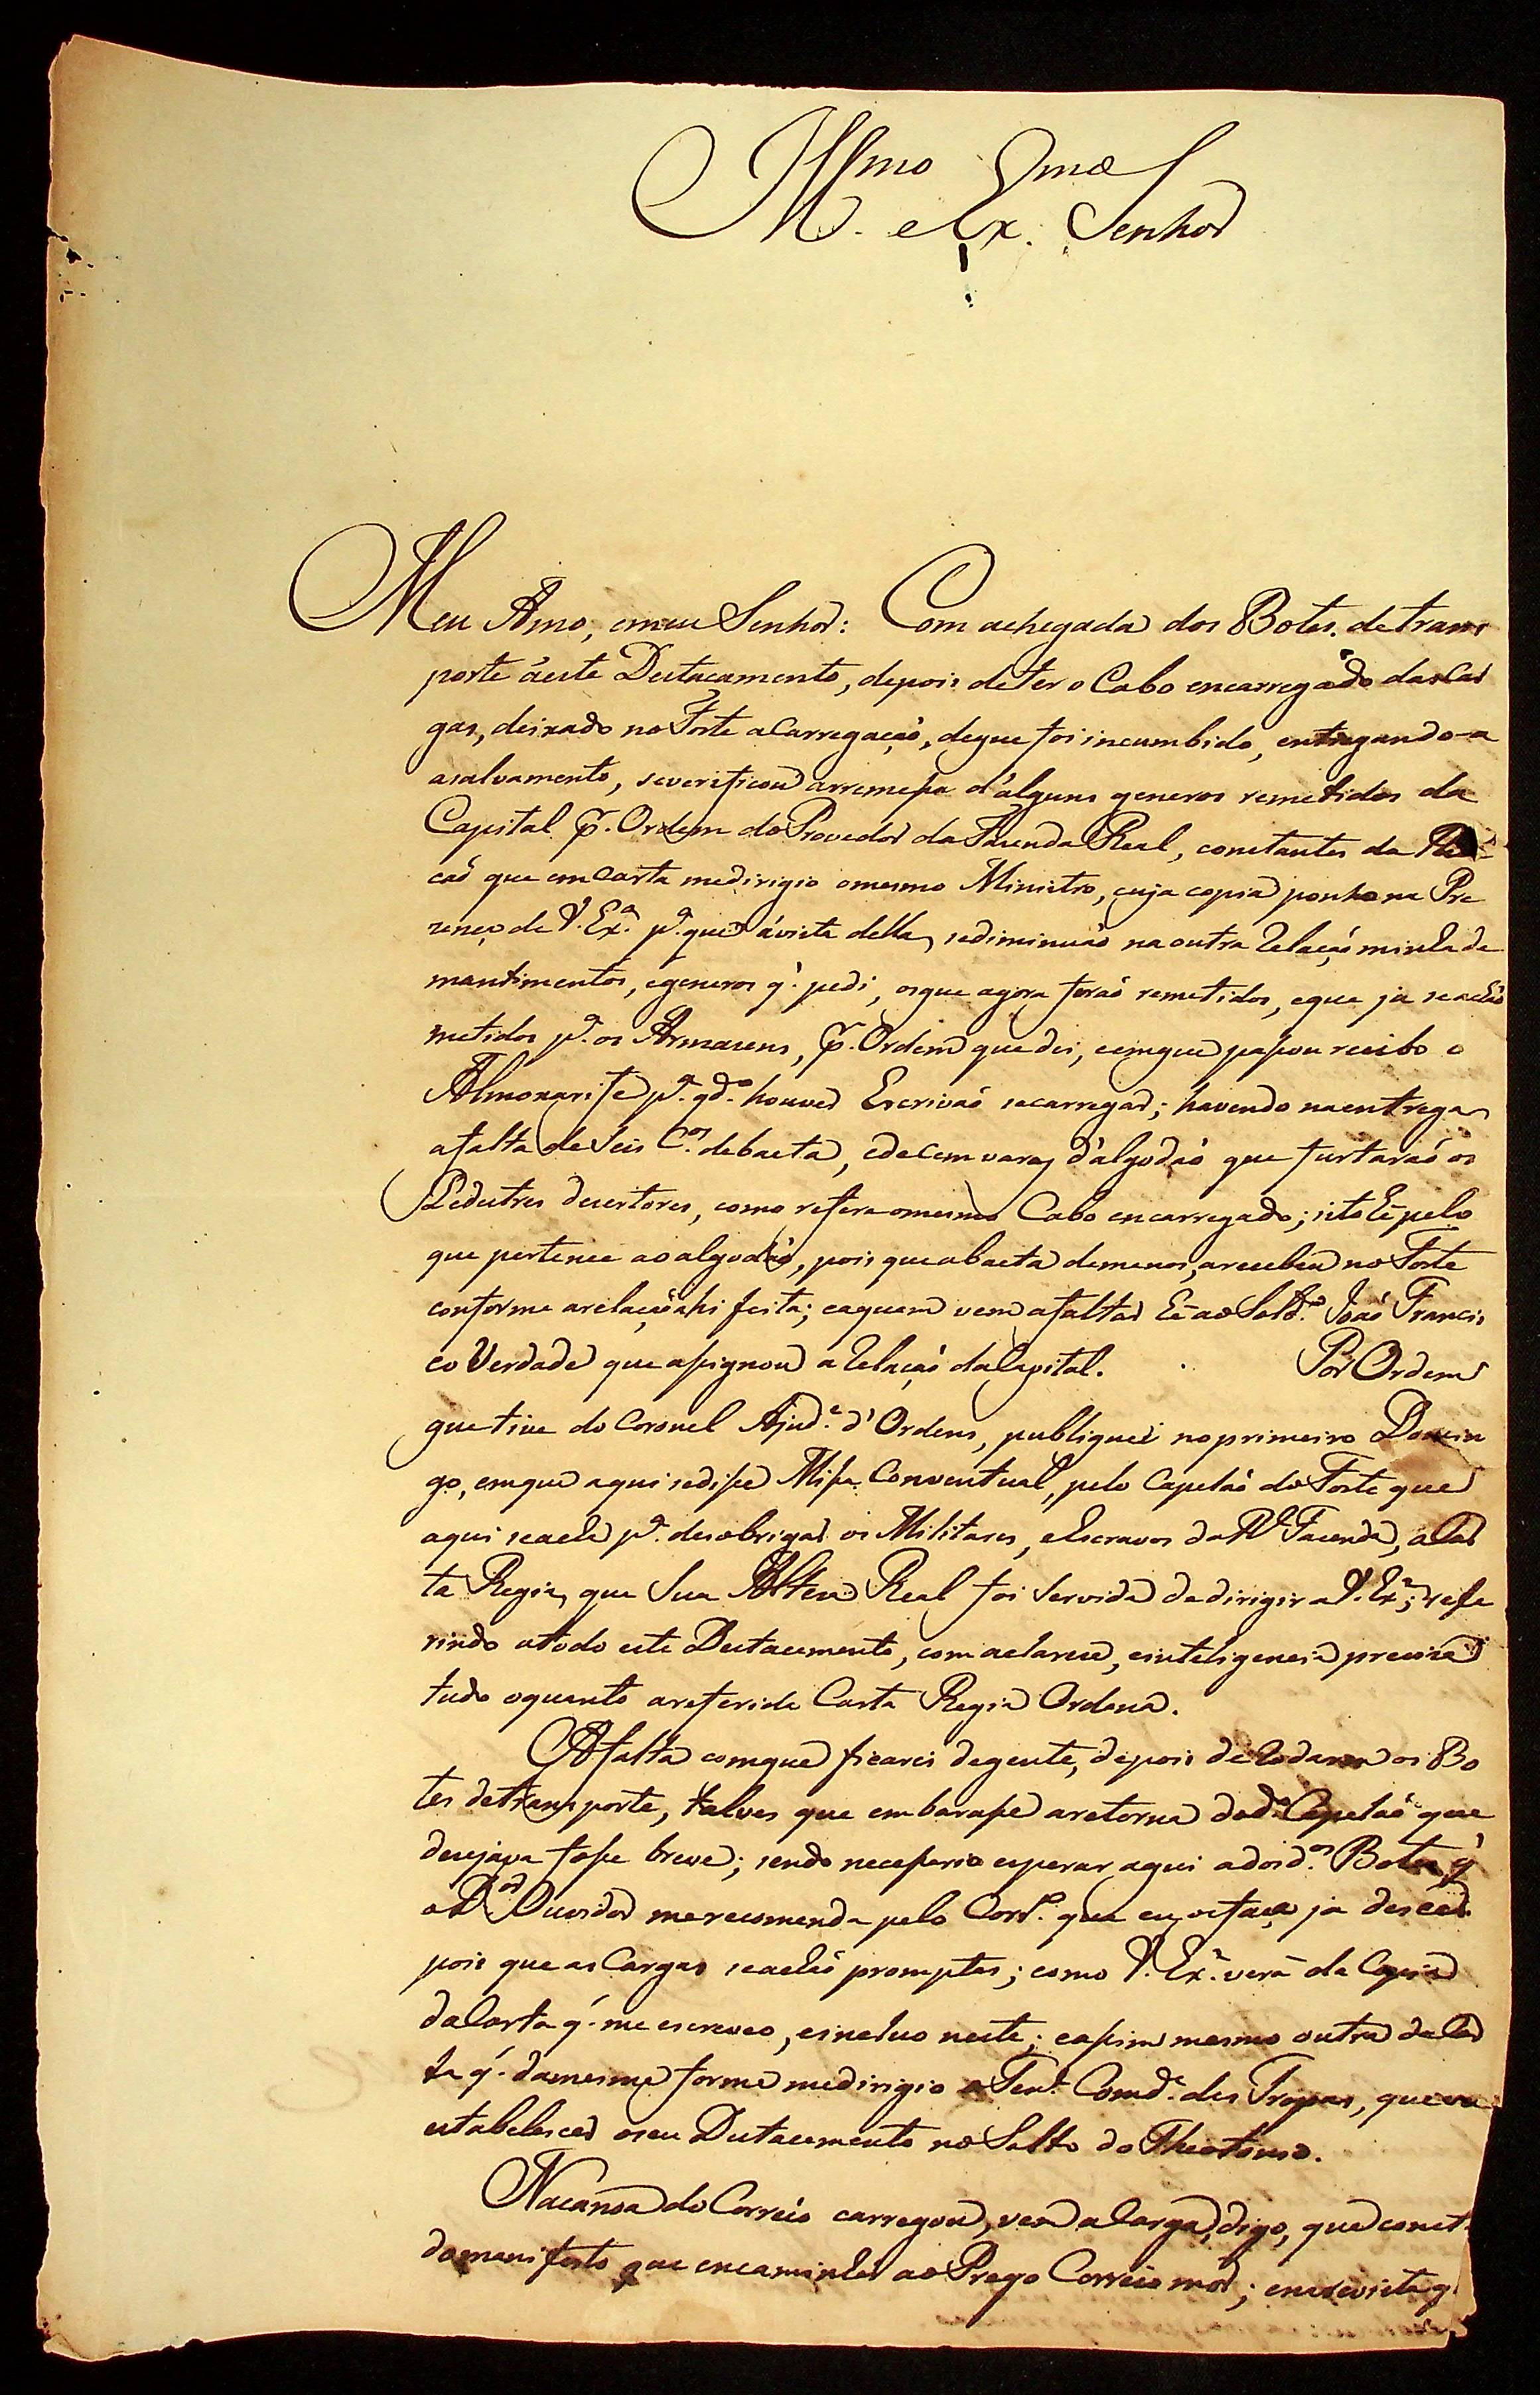 Ill.mo e Ex.mo Senhor
Meu Amo, emeu Senhor: Com achegada dos Botes detrans
porte áeste Destacamento, depois deter o Cabo encarregado das Car
gas, deixado no Forte aCarregação, deque foi incumbido, entregando-a
asalvamento, severificou arremessa d'alguns generos remetidos da
Capital p.r Ordem do Provedor da Fazenda Real, constantes da
caõ que em Carta medirigio omesmo Ministro, cuja copia ponho na Pre
zença de V. Ex.a p.a que ávista della, sediminuaõ na outra Relaçaõ minha de
mantimentos, egeneros q' pedi, osque agora foraõ remetidos, eque ja seachaõ
metidos p.a os Armazens, p.r Ordem que dei, eemque passou recibo o
Almoxarife p.a q.do houver Escrivaõ secarregar; havendo naentrega
afalta de Seis C.os debaeta, edecem varas d'algodaõ que furtaraõ os
Pedestres desertores, como refere omesmo Cabo encarregado; isto hé pelo
que pertence ao algodaõ, pois que abaeta demenos, arecebeu no Forte
conforme arelaçaõ ahi feita; eaquem vem afaltar hé ao Sold.o Joaõ Francis
co Verdade que assignou a Relaçaõ da Capital. Por Ordem
que tive do Coronel Ajud.e d'Ordens, publiquei noprimeiro Domin
go, emque aqui sedisse Missa Conventual, pelo Capelaõ do Forte que
aqui seacha p.a desobrigar os Militares, eEscravos da R.l Fazenda, aCar
ta Regia, que Sua Alteza Real foi Servida dedirigir aV. Ex.a; refe
rindo atodo este Destacamento, com aclareza, einteligencia preciza
tudo oquanto areferida Carta Regia Ordena.
Afalta comque ficarei degente, depois de Rodarem os Bo
tes detransporte, talves que embarasse aretorna dod.o Capelaõ que
desejava fosse breve; sendo necessario esperar aqui adois d.os Botes, q'
oD.or Ouvidor merecomenda pelo Corr.o que eu osfaça ja descer
pois que as Cargas seachaõ promptas; como V. Ex.a verá da Copia
daCarta q' me escreveo, eincluo neste; eassim mesmo outra da Car
ta q' damesma forma medirigio o Ten.e Comd.e das Tropas, que vai
estabelecer oseu Destacamento no Salto do Theotonio.
Nacanoa do Correio carregou, vem aCarga, digo, que const
domanifesto que encaminhei ao Prego Correio mor; emcuvista q